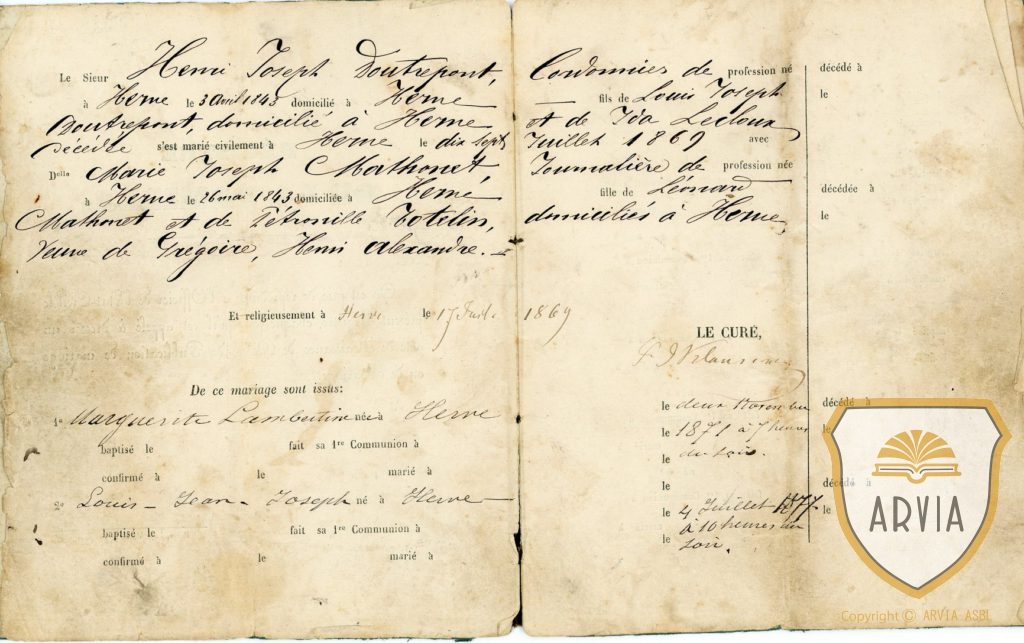 Le Sieur Henri Joseph Doutrepont, Cordonnier de profession né décédé à
à Herve le 3 avril 1843 domicilié à Herve fils de Louis Joseph le
Doutrepont, domicilié à Herve et de Ida Lecloux
Décédée s'est marié civilement à Herve le dix Sept Juillet 1869 avec
Delle Marie Joseph Mathonet, Journalière de profession née
à Herve le 26 mai 1843 domiciliée à Herve fille de Léonard décédée à
Mathonet et de Pétronille Totelin, domiciliés à Herve, le
Veuve de Grégoire, Henri Alexandre.
Et religieusement à Herve le 17 Juillet 1869
LE CURÉ,
De ce mariage sont issus:
1° Marguerite Lambertine née à Herve le deux Novembre décédé à
baptisé le fait sa 1re Communion à le 1871 à 7 heures le
le du soir.
confirmé à le marié à le
2° Louis - Jean - Joseph né à Herve le 4 Juillet 1877 décédé à
baptisé le fait sa 1re Communion à à 10 heures du le
confirmé à le marié à le soir.
ARVIA
Copyright © ARVIA ASBL